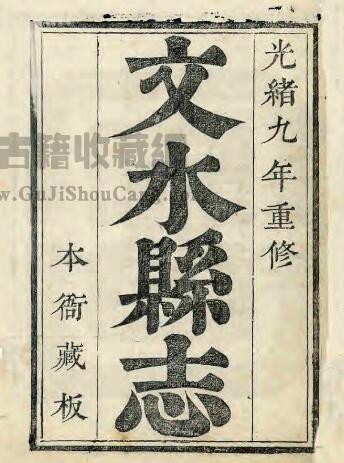 光緒九年重修
文水縣志
本衙藏板
古籍收藏網
www.GuJiShouCang.com